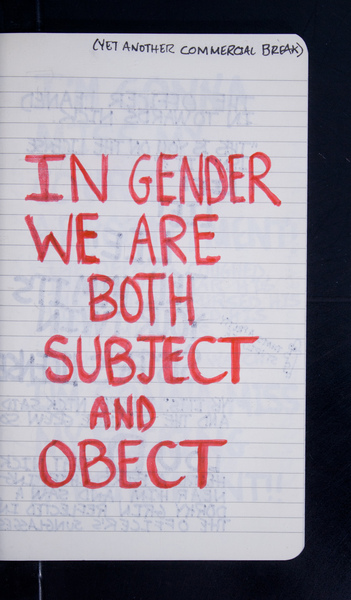 (YET ANOTHER COMMERCIAL BREAK)
IN GENDER
WE ARE
BOTH
SUBJECT
AND
OBECT